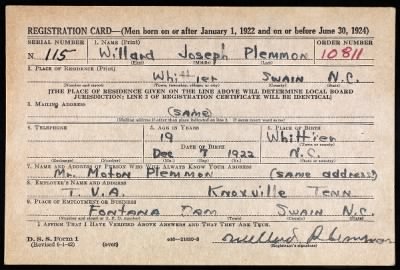 REGISTRATION CARD—(Men born on or after January 1, 1922 and on or before June 30, 1924)
SERIAL NUMBER 1. NAME (Print) ORDER NUMBER
N 115 Willard Joseph Plemmon 10811
(First) (Middle) (Last)
2. PLACE OF RESIDENCE (Print)
Whittier Swain N.C.
(Number and street) (Town, township, village, or city) (County) (State)
[THE PLACE OF RESIDENCE GIVEN ON THE LINE ABOVE WILL DETERMINE LOCAL BOARD
JURISDICTION; LINE 2 OF REGISTRATION CERTIFICATE WILL BE IDENTICAL]
3. MAILING ADDRESS
(same)
[Mailing address if other than place indicated on line 2. If same insert word same]
4. TELEPHONE 5. AGE IN YEARS 6. PLACE OF BIRTH
19 Whittier
DATE OF BIRTH (Town or county)
Dec 7 1922 N.C.
(Exchange) (Number) (Mo.) (Day) (Yr.) (State or country)
7. NAME AND ADDRESS OF PERSON WHO WILL ALWAYS KNOW YOUR ADDRESS
Mr. Moton Plemmon (same address)
8. EMPLOYER'S NAME AND ADDRESS
T. V. A. Knoxville Tenn
9. PLACE OF EMPLOYMENT OR BUSINESS
Fontana Dam Swain N.C.
(Number and street or R. F. D. number) (Town) (County) (State)
I AFFIRM THAT I HAVE VERIFIED ABOVE ANSWERS AND THAT THEY ARE TRUE.
D. S. S. Form 1
(over)
Willard Plemmon